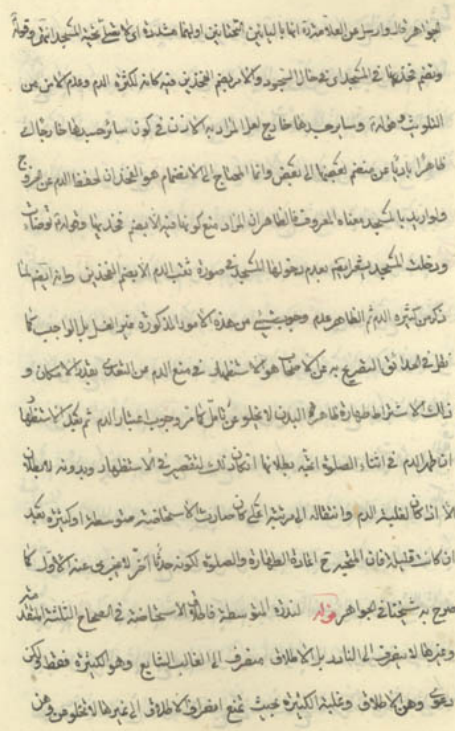 الجواهر قاله وارسل عن العلامة انها بالبائين التحتانيتين اوليهما مشددة اى لا تصلى تحية المسجد انتهى وقوله
وتضم فخذيها في المسجد اى في حال السجود والامر بضم الفخذين فيه كانه لكثرة الدم وعدم الامن من
التلويث وقوله وسائر جسدها خارج لعل المراد به الاذن في كون سائر جسدها خارجا اى
ظاهرا باديا غير منضم بعضها الى بعض وانما المحتاج الى الانضمام هو الفخذان لحفظ الدم عن الخروج
ولو اريد بالمسجد معناه المعروف فالظاهر ان المراد منع كونها فيه الا بضم فخذيها وقوله توضأت
ودخلت المسجد يشعر بعدم دخولها المسجد في صورة ثقب الدم الا بضم الفخذين ايضا لما
ذكر من كثرة الدم ثم الظاهر عدم وجوب شيء من هذه الامور المذكورة غير الغسل بل الواجب كما
نقل في الحدائق التصريح به عن الاصحاب هو الاستظهار في منع الدم من التعدى بقدر الامكان و
ذلك لاشتراط طهارة ظاهر البدن لا يخلو عن تامل كما مر وجوب اعتبار الدم ثم بعد الاستظهار
ان ظهر الدم في اثناء الصلوة اتجه بطلانها ان كان ذلك لتقصير في الاستظهار وبدونه لا بطلان
الا اذا كان لغلبة الدم وانتقاله الى مرتبة اعلى كان صارت الاستحاضة متوسطة او كثيرة بعد
ان كانت قليلة فان المتجه ح اعادة الطهارة والصلوة لكونه حدثا آخر لا يجزى عنه الاول كما
صرح به شيخنا في الجواهر قوله لندرة المتوسطة فاطلاق الاستحاضة في الصحاح الثلثة المتقدمة
وغيرها لا ينصرف الى النادر بل الاطلاق منصرف الى الغالب الشايع وهو الكثيرة فقط ولكن
دعوى وهن الاطلاق وغلبة الكثيرة بحيث تمنع انصراف الاطلاق الى غيرها لا تخلو من وهن